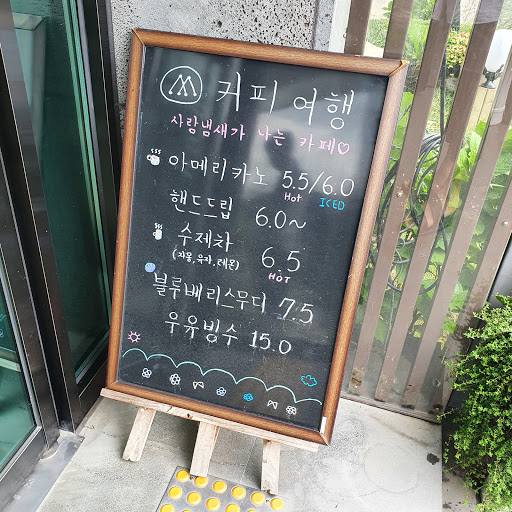 커피여행
사람냄새가 나는 카페♡
아메리카노 5.5/6.0
Hot ICED
핸드드립 6.0~
수제차 6.5
(자몽,유자,레몬) HOT
블루베리스무디 7.5
우유빙수 15.0